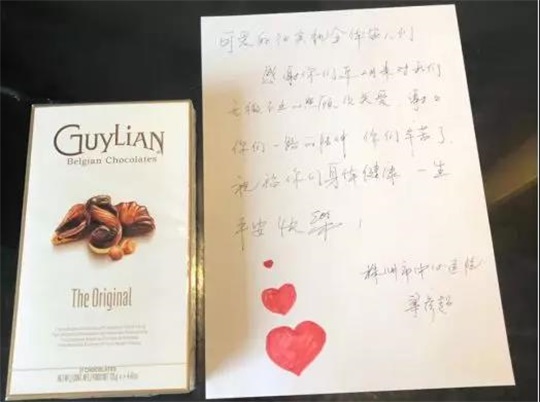 GUYLIAN
Belgian Chocolates
The Original
CHOCOLATES
可爱的 全体家人们
感谢你们 月来对我们
无微不至的照顾 关爱 谢谢
你们一路的陪伴 你们辛苦了
祝福你们身体健康 一生
平安快乐！
株洲市中心医院